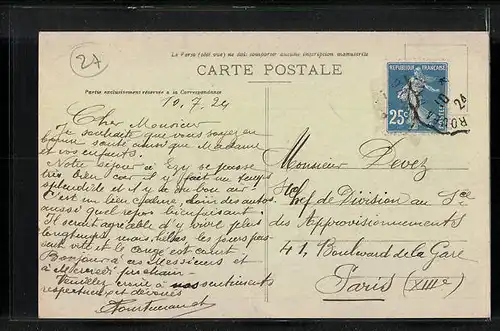 27
Le Verso (côté vue) ne doit comporter aucune inscription manuscrite
CARTE POSTALE
Partie exclusivement réservée à la Correspondance
REPUBLIQUE FRANÇAISE
25c
10.7.24
Cher Monsieur
Je souhaite que vous soyez en
bonne santé, ainsi que Madame
et vos enfants.
Notre séjour à Ezy se passe
très bien car il y fait un temps
splendide et il y a du bon air!
C'est un lieu calme, loin des autos
aussi quel repos bienfaisant!
Il serait agréable d'y vivre plus
longtemps mais, hélas les jours passent
vite et le congé est court
Bonjour à ces Messieurs et
à Mercredi prochain.
Veuillez croire à nos sentiments
respectueux et dévoués
Monsieur Devez
Chef de Division au Sce
des Approvisionnements
41, Boulevard de la Gare
Paris (XIIIe)